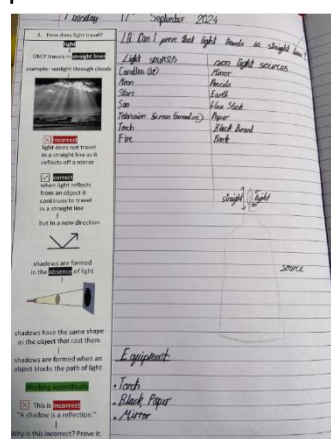 Tuesday 17th September 2024
1. How does light travel?
light
ONLY travels in straight lines
example: sunlight through clouds
incorrect
light does not travel
in a straight line as it
reflects off a mirror
correct
when light reflects
from an object it
continues to travel
in a straight line
but in a new direction
shadows are formed
in the absence of light
shadows have the same shape
as the object that cast them
shadows are formed when an
object blocks the path of light
Working scientifically
This is incorrect
"A shadow is a reflection."
Why is this incorrect? Prove it.
I.Q Can I prove that light travels in straight line?
Light sources
Candles (lit)
Moon
Stars
Sun
Television
Torch
Fire
non light sources
Mirror
Pencils
Earth
Glue Stick
Paper
Black Board
Book
straight light
source
Equipment
• Torch
• Black Paper
• Mirror